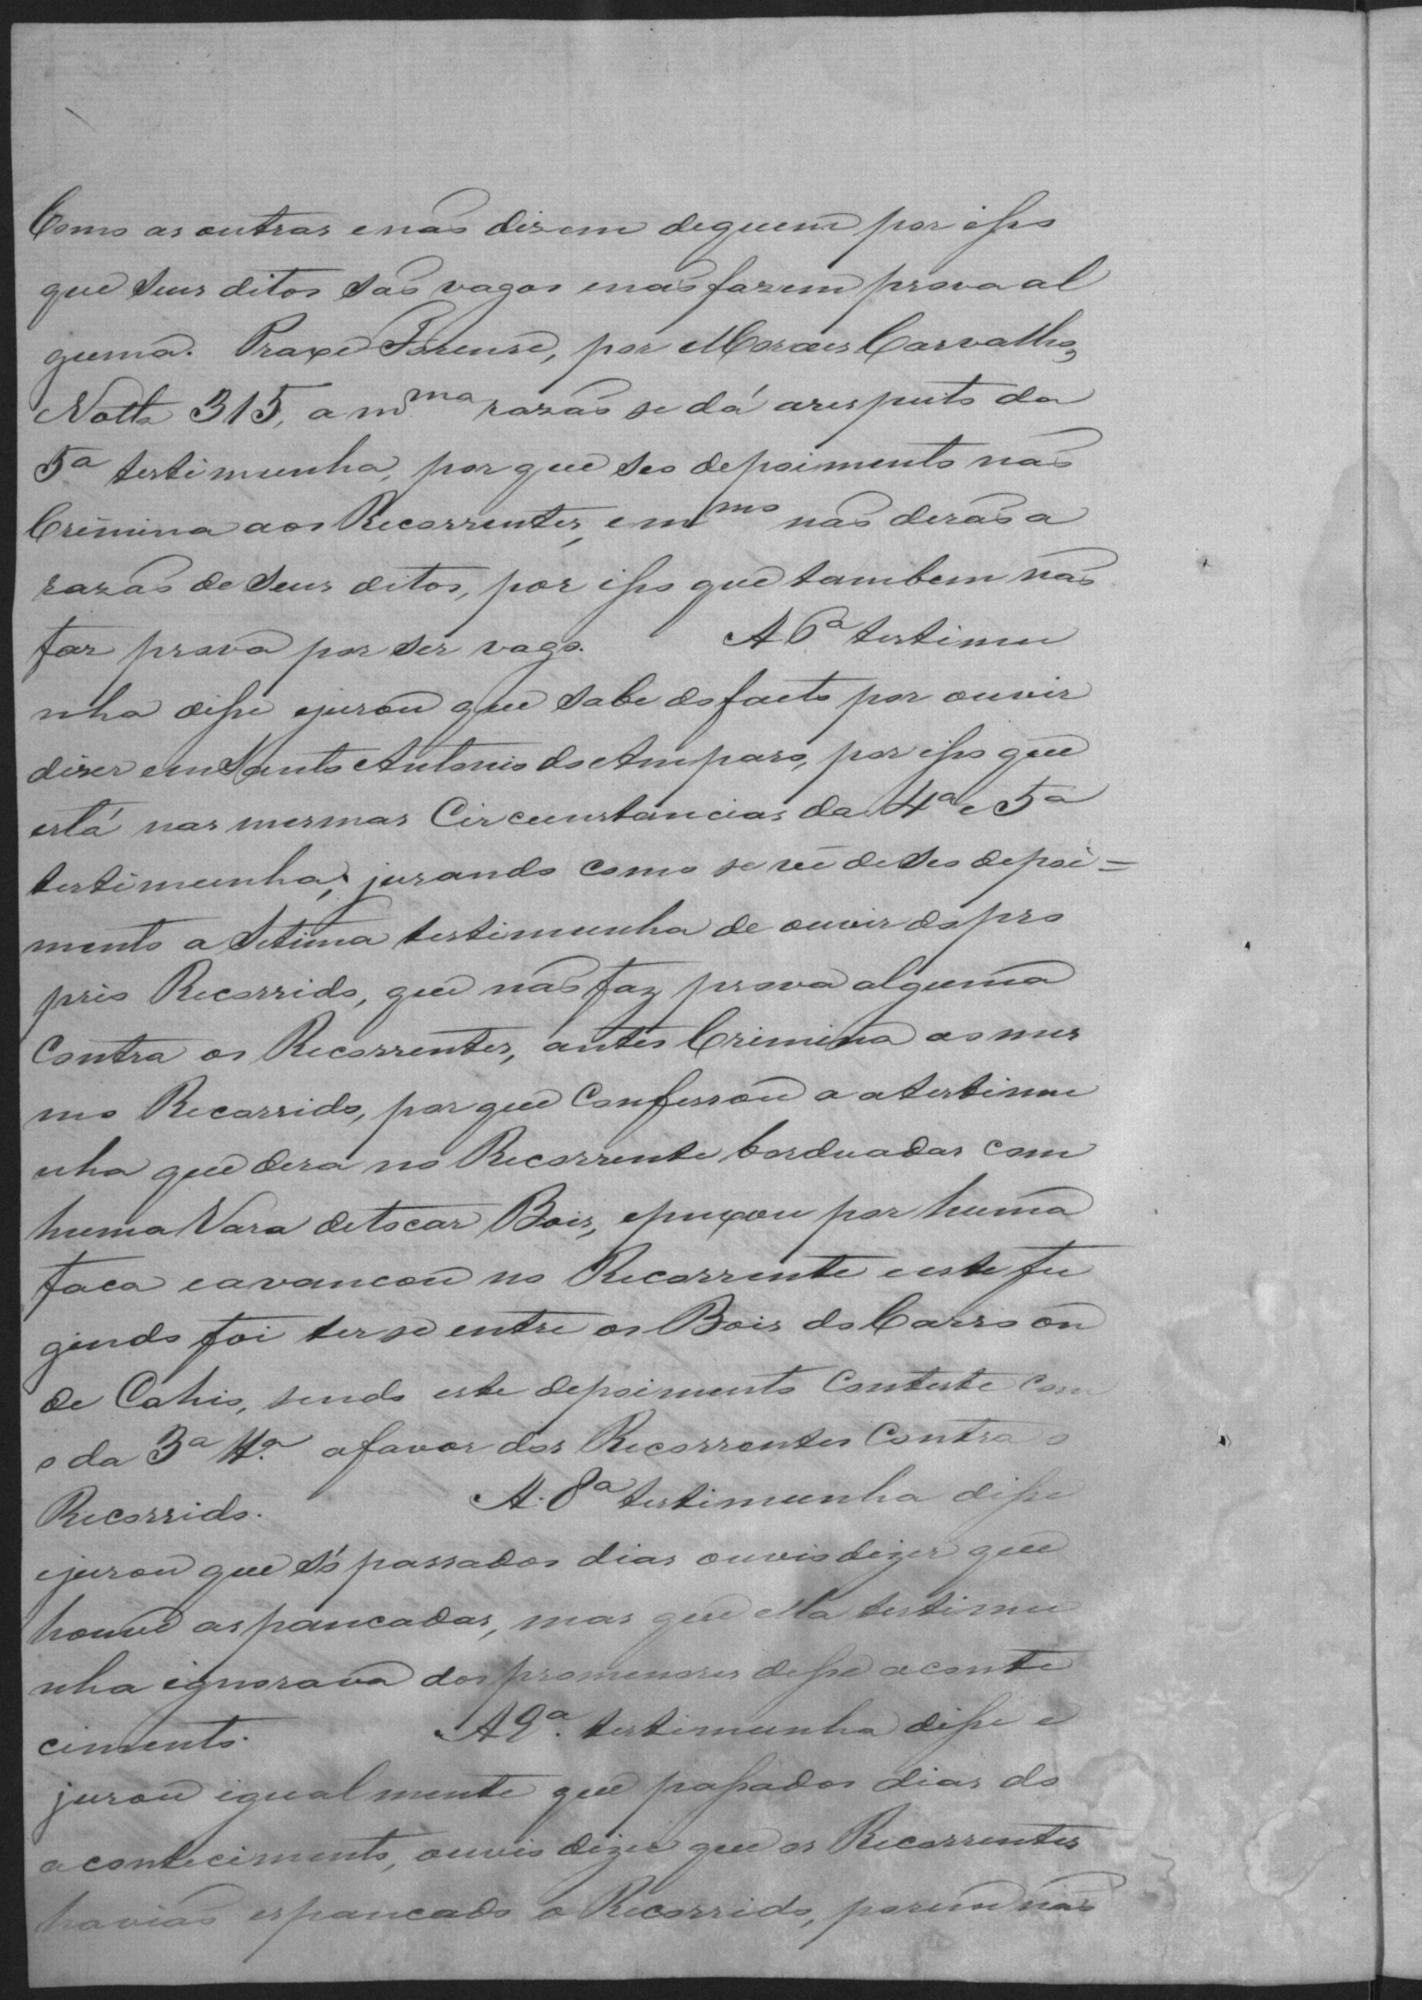 Como as outras e não disem de quem por isso
que seus ditos são vagos e não fazem prova al
guma. Praxe Forense, por Moraes Carvalho,
Notta 315, a m.ma razão se dá a respeito da
5.a testimunha, por que seo depoimento não
Crimina aos Recorrentes, e m.mo não derão a
razão de seus ditos, por isso que tambem não
faz prova por ser vago. A 6.a testimu
nha disse e jurou que sabe do facto por ouvir
diser em Santo Antonio do Amparo, por isso que
está nas mesmas Circunstancias da 4.a e 5.a
testimunha; jurando como se vê de seo depoi=
mento a Setima testimunha de ouvir do pro
prio Recorrido, que não faz prova alguma
Contra os Recorrentes, antes Crimina ao mes
mo Recorrido, por que Confessou a a testimu
nha que dera no Recorrente borduadas com
huma Vara de tocar Bois, e puxou por huma
faca e avancou no Recorrente e este fu
gindo foi ter se entre os Bois do Carro on
de Cahio, sendo este depoimento Conteste com
o da 3.a 4.a a favor dos Recorrentes Contra o
Recorrido. A 8.a testimunha disse
e jurou que só passados dias ouvio dizer que
houve as pancadas, mas que ella testimu
nha ignorava dos promenores desse aconte
cimento. A 9.a testimunha disse e
jurou igualmente que passados dias do
acontecimento, ouvio dizer que os Recorrentes
havião espancado o Recorrido, porem não